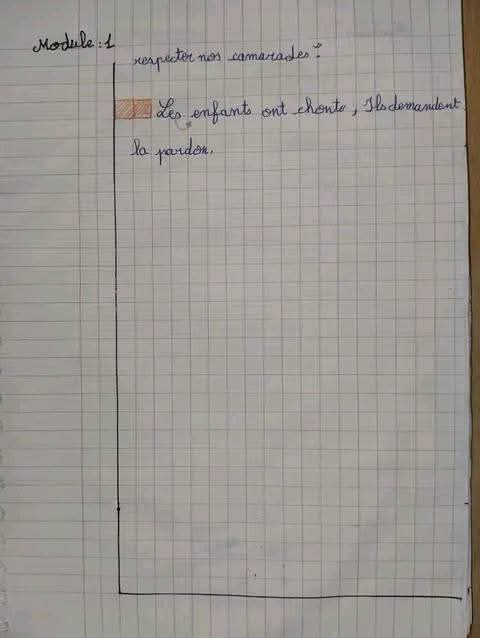 Module : 1
respecter nos camarades ?
Les enfants ont chonte, Ils demandent
la pardon.